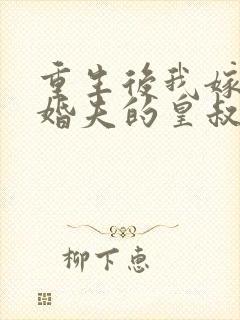 重生後我嫁
婚夫的皇叔
柳下惠